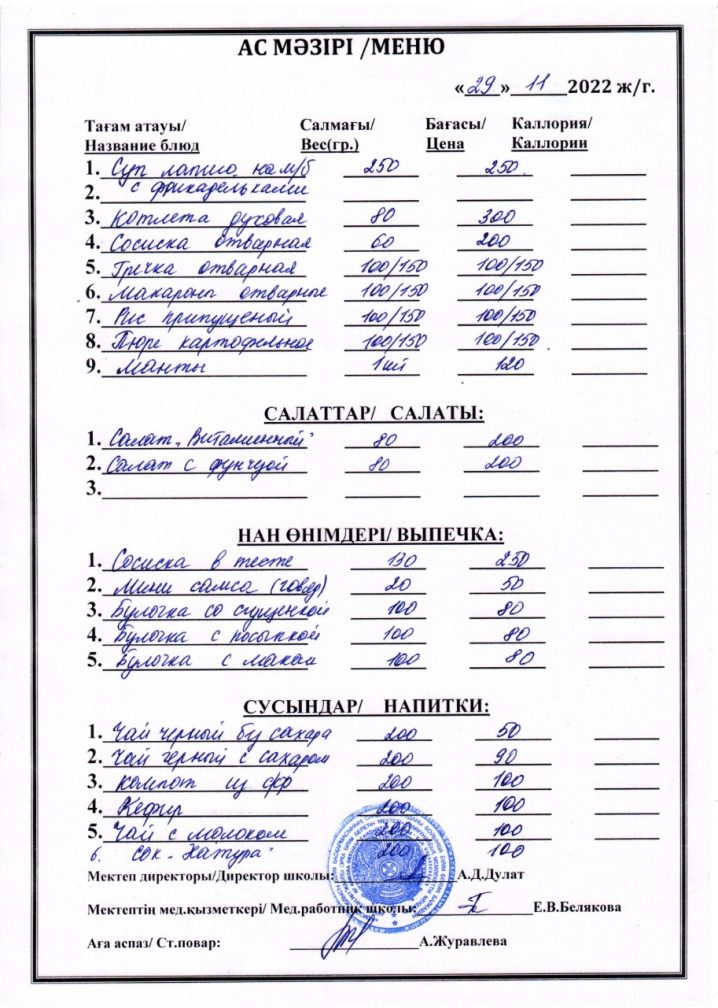 АС МӘЗІРІ /МЕНЮ
«29» 11 2022 ж/г.
Тағам атауы/ Салмағы/ Бағасы/ Каллория/
Название блюд Вес(гр.) Цена Каллории
1. Суп лапша на м/б 250 250
2. с фрикадельками
3. Котлета духовая 80 300
4. Сосиска отварная 60 200
5. Гречка отварная 100/150 100/150
6. Макароны отварные 100/150 100/150
7. Рис припущеный 100/150 100/150
8. Пюре картофельное 100/150 100/150
9. Манты 1шт 120
САЛАТТАР/ САЛАТЫ:
1. Салат „Витаминный" 80 200
2. Салат с фунчузой 80 200
3.
НАН ӨНІМДЕРІ/ ВЫПЕЧКА:
1. Сосиска в тесте 130 250
2. Мини самса (говяд) 20 50
3. Булочка со сгущенкой 100 80
4. Булочка с посыпкой 100 80
5. Булочка с маком 100 80
СУСЫНДАР/ НАПИТКИ:
1. Чай черный без сахара 200 50
2. Чай черный с сахаром 200 90
3. Компот из с/ф 200 100
4. Кефир 200 100
5. Чай с молоком 200 100
6. Сок „Натура" 200 100
Мектеп директоры/Директор школы: А.Д.Дулат
Мектептің мед.қызметкері/ Мед.работник школы: Е.В.Белякова
Аға аспаз/ Ст.повар: А.Журавлева